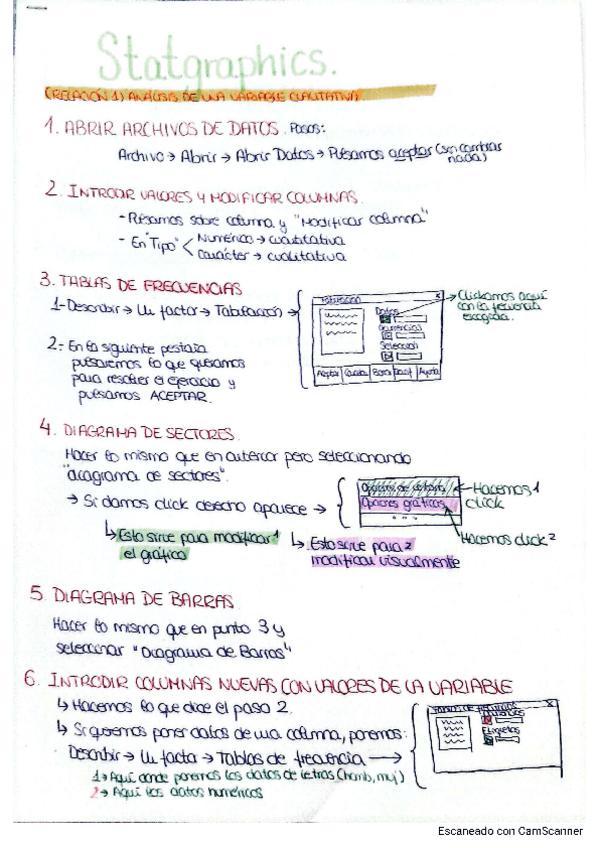 Statgraphics.
(RELACIÓN 1) ANÁLISIS DE UNA VARIABLE CUALITATIVA.
1. ABRIR ARCHIVOS DE DATOS. Pasos:
Archivo → Abrir → Abrir Datos → Pulsamos aceptar (sin cambiar nada)
2. INTRODIR VALORES Y MODIFICAR COLUMNAS.
- Pulsamos sobre columna y "Modificar columna"
- En "Tipo" < Numérico → cuantitativa
Carácter → cualitativa
3. TABLAS DE FRECUENCIAS
1- Describir → Un factor → Tabulación →
Tabulación x
Datos
Selección
Aceptar Cancelar Borrar Ayuda
→ Clickamos aquí con la frecuencia escogida.
2.- En la siguiente pestaña
pulsaremos lo que queramos
para resolver el ejercicio y
pulsamos ACEPTAR.
4. DIAGRAMA DE SECTORES.
Hacer lo mismo que en anterior pero seleccionando
"diagrama de sectores".
→ Si damos click derecho aparece →
Opciones gráficas
← Hacemos 1 click
Hacemos click 2
↳ Esto sirve para modificar 1
el gráfico
↳ Esto sirve para 2
modificar visualmente
5. DIAGRAMA DE BARRAS
Hacer lo mismo que en punto 3 y
seleccinar "Diagrama de Barras"
6. INTRODIR COLUMNAS NUEVAS CON VALORES DE LA VARIABLE
↳ Hacemos lo que dice el paso 2.
↳ Si queremos poner datos de una columna, ponemos:
Describir → Un factor → Tablas de frecuencia →
Etiquetas
1 → Aquí donde ponemos los datos de letras (homb, muj)
2 → Aquí los datos numéricos
Escaneado con CamScanner